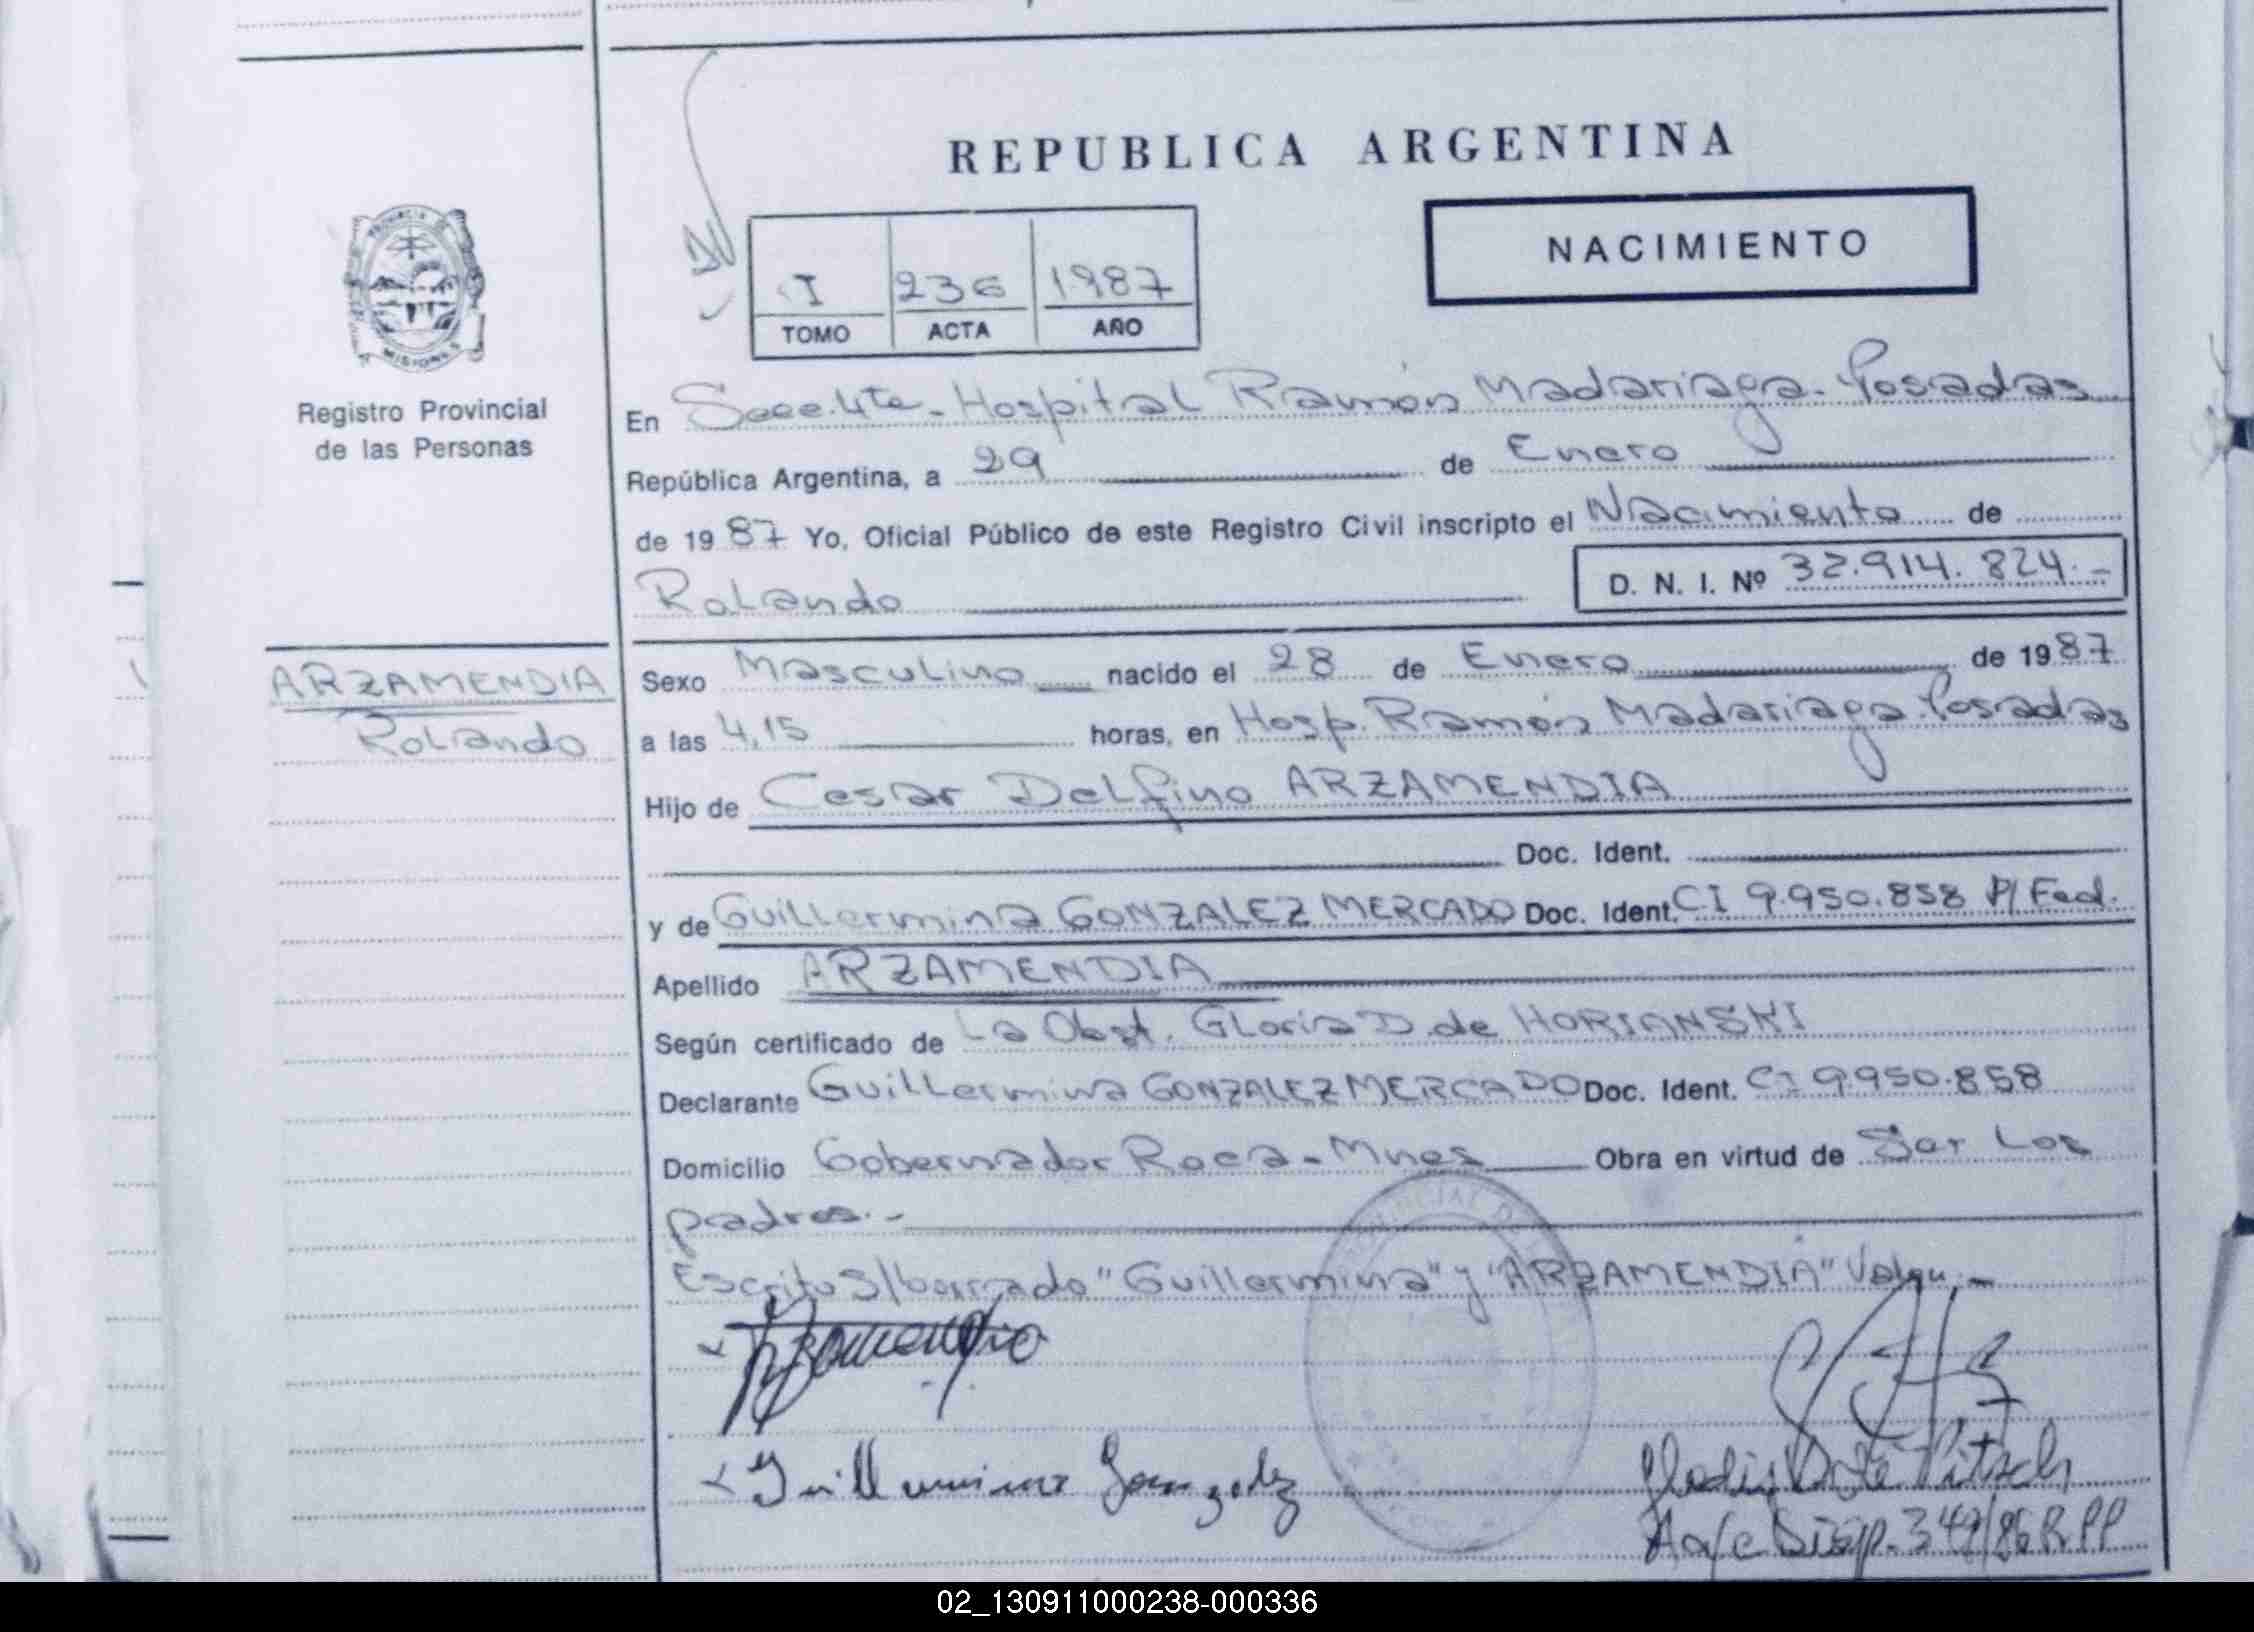 REPUBLICA ARGENTINA
NACIMIENTO
I 236 1987
TOMO ACTA AÑO
PROVINCIA DE
MISIONES
Registro Provincial
de las Personas
En Secc. 4ta - Hospital Ramón Madariaga - Posadas
República Argentina, a 29 de Enero
de 1987 Yo, Oficial Público de este Registro Civil inscripto el Nacimiento de
Rolando D. N. I. Nº 32.914.824.-
ARZAMENDIA
Rolando
Sexo Masculino nacido el 28 de Enero de 1987
a las 4,15 horas, en Hosp. Ramón Madariaga Posadas
Hijo de Cesar Delfino ARZAMENDIA
Doc. Ident.
y de Guillermina GONZALEZ MERCADO Doc. Ident. CI 9.950.858 P/Fed.
Apellido ARZAMENDIA
Según certificado de La Obst. Gloria D. de HORIANSKI
Declarante Guillermina GONZALEZ MERCADO Doc. Ident. CI 9.950.858
Domicilio Gobernador Roca - Mnes Obra en virtud de Ser Los
padres.-
Escrito S/borrado "Guillermina" y "ARZAMENDIA" Valen.-
Arzamendia
Guillermina Gonzalez
Pitsch
A/c Disp. 349/86 R.PP
02_130911000238-000336